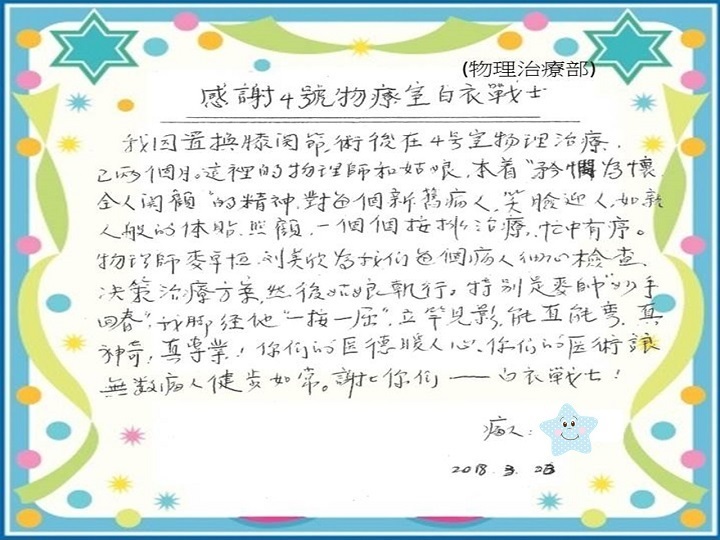 (物理治療部)
感謝4號物療室白衣戰士
我因置換膝関節術後在4号室物理治療.
已兩個月。這裡的物理師和姑娘,本着"矜憫為懷
全人関顧"的精神,對每個新舊病人,笑臉迎人,如親
人般的体貼照顧,一個個按排治療,忙中有序。
物理師麥 劉美欣為我们每個病人细心檢查、
决策治療方案,然後姑娘執行。特别是麥師"妙手
回春",我脚经他"一按一屈",立竿見影,能直能弯,真
神奇,真專業!你们的医德暖人心、你们的医術讓
無数病人健步如常。謝谢你们——白衣戰士!
病人:
2018. 3. 23